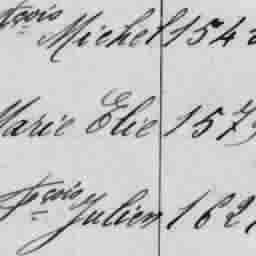 fçois Michel 154
Marie Elie 157
fçois Julien 162